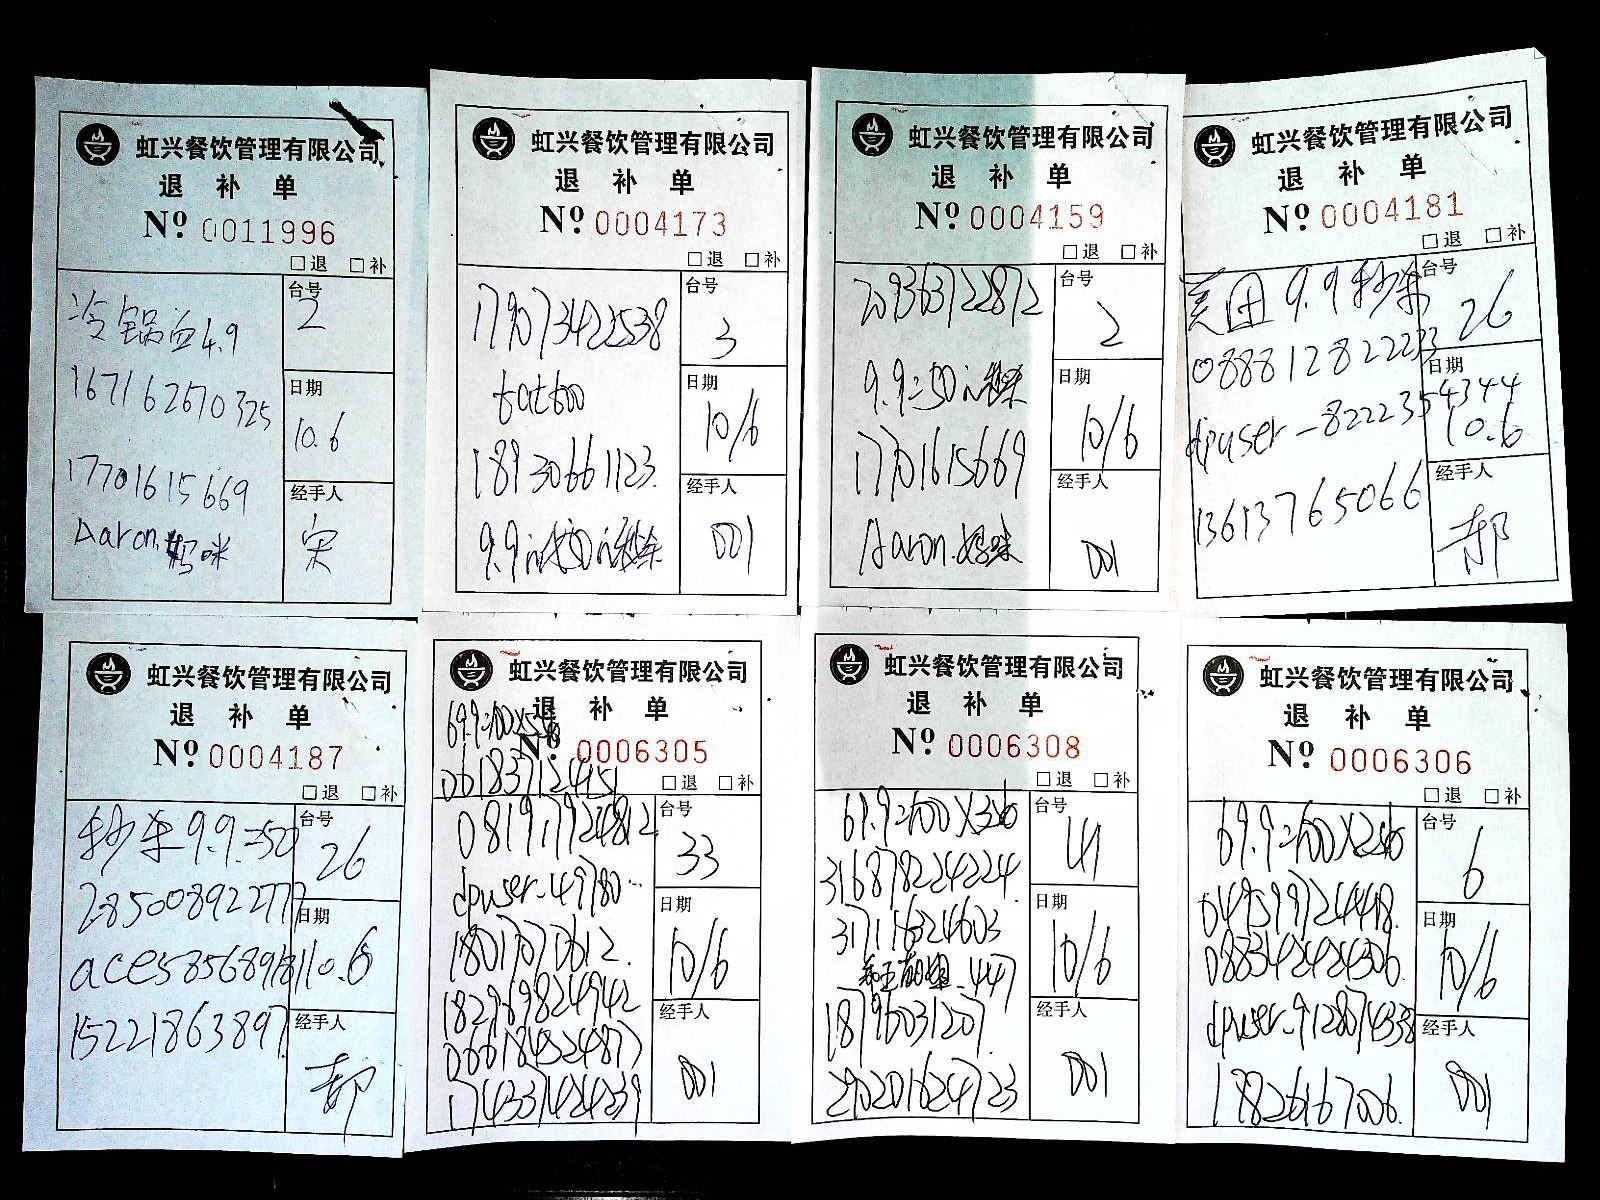 虹兴餐饮管理有限公司
退 补 单
Nº 0011996
□退 □补
冷锅血4.9
167162670325
17701615669
Aaron.妈咪
台号
2
日期
10.6
经手人
宋
虹兴餐饮管理有限公司
退 补 单
Nº 0004173
□退 □补
179073422538
tattoo
18930661123.
台号
3
日期
10/6
经手人
001
虹兴餐饮管理有限公司
退 补 单
Nº 0004159
□退 □补
209363722872
9.9=50
17701615669
Aaron.妈咪
台号
2
日期
10/6
经手人
001
虹兴餐饮管理有限公司
退 补 单
Nº 0004181
□退 □补
美团9.9秒杀
088812822233
dpuser-8222354344
13613765066
台号
26
日期
10.6
经手人
郝
虹兴餐饮管理有限公司
退 补 单
Nº 0004187
□退 □补
秒杀9.9=50
285008922777
ace585689181
15221863897
台号
26
日期
10.6
经手人
郝
虹兴餐饮管理有限公司
退 补 单
Nº 0006305
□退 □补
061837124151
081917924812
dpuser-49780…
18017070612.
182969824942
066184324877
174337424239
台号
33
日期
10/6
经手人
001
虹兴餐饮管理有限公司
退 补 单
Nº 0006308
□退 □补
69.9=100X3
316878224224.
317116324603
18796031207.
290201624723
台号
41
日期
10/6
经手人
001
虹兴餐饮管理有限公司
退 补 单
Nº 0006306
□退 □补
69.9=100X2
049599724418.
088342424306.
dpuser-91280714338
18826167006.
台号
6
日期
10/6
经手人
001